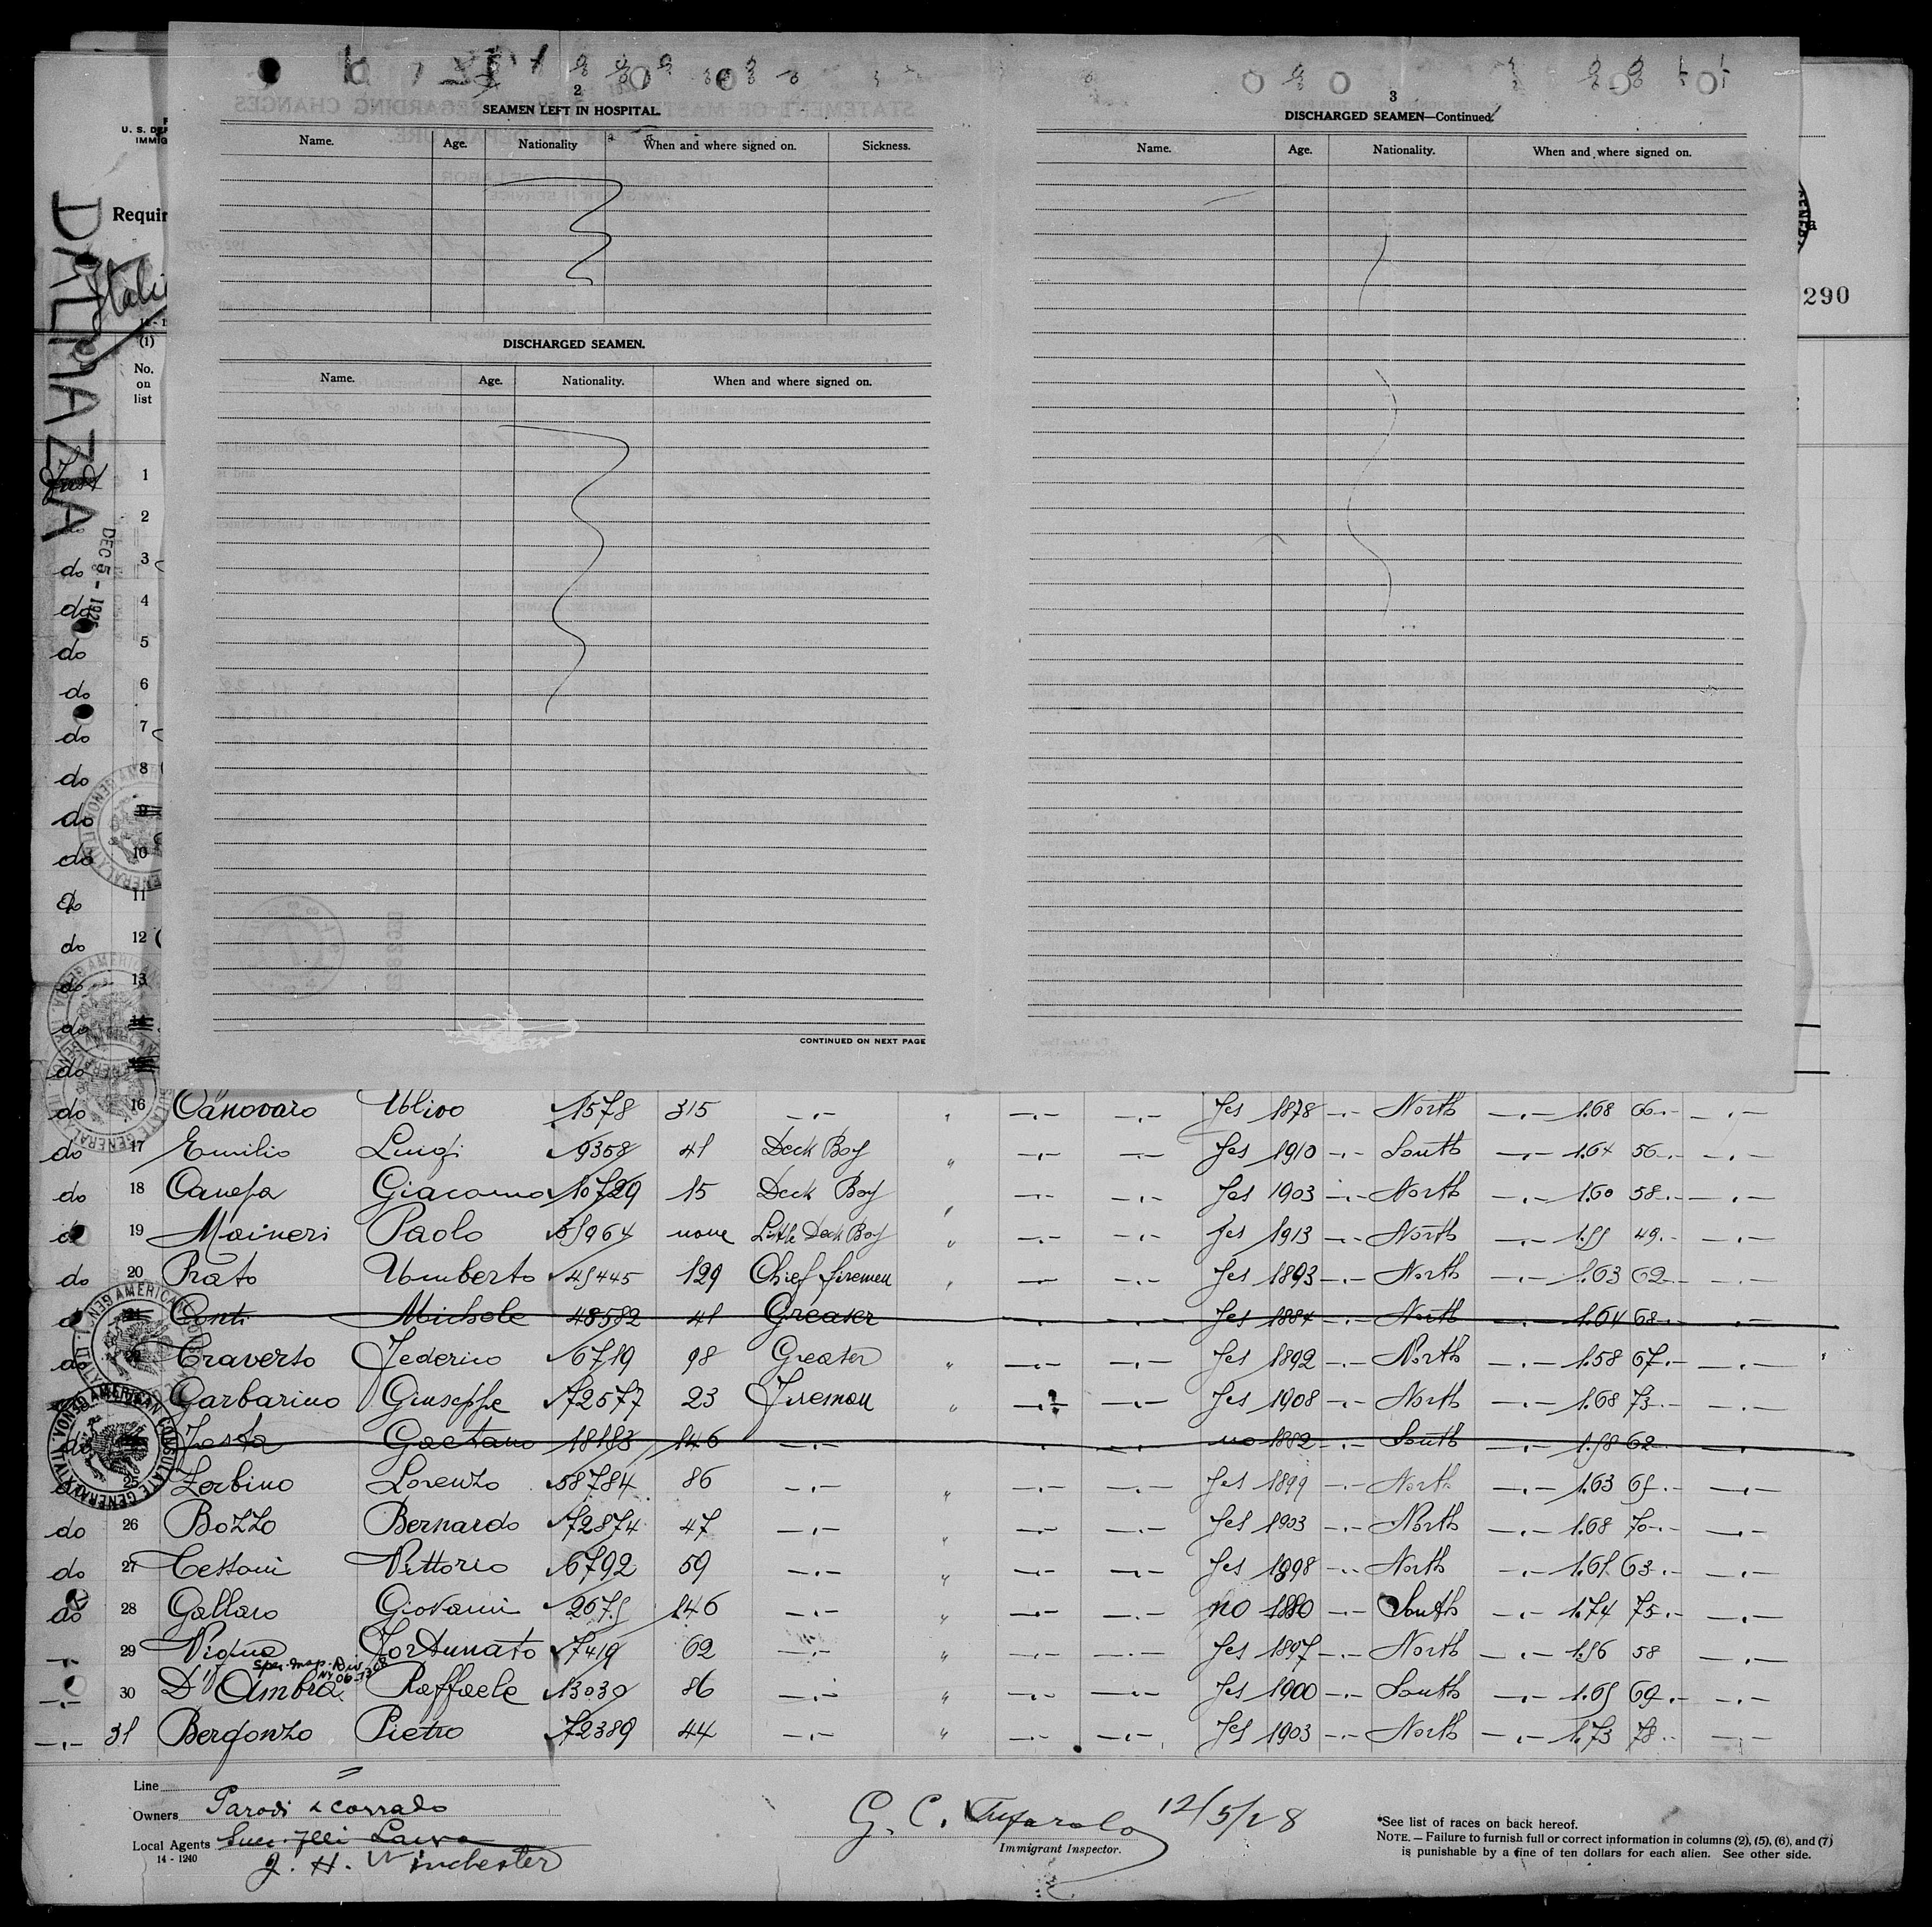 2
SEAMEN LEFT IN HOSPITAL.
Name. Age. Nationality When and where signed on. Sickness.
DISCHARGED SEAMEN.
Name. Age. Nationality. When and where signed on.
CONTINUED ON NEXT PAGE
3
DISCHARGED SEAMEN—Continued.
Name. Age. Nationality. When and where signed on.
Requir
290
DALMAZIA
DEC 5 - 192
(1)
No.
on
list
1
2
do 3
do 4
do 5
do 6
do 7
do 8
do 9
do 10
do 11
do 12
do 13
do 14
do 15
do 16 Canovaro Ulivo 1578 315 —.— " —.— —.— Yes 1878 —.— North —.— 1.68 66 —.—
do 17 Emilio Luigi 9358 41 Deck Boy " —.— —.— Yes 1910 —.— South —.— 1.64 56 —.—
do 18 Canepa Giacomo 10729 15 Deck Boy " —.— —.— Yes 1903 —.— North —.— 1.60 58 —.—
do 19 Maineri Paolo 964 none Little Deck Boy " —.— —.— Yes 1913 —.— North —.— 1.55 49 —.—
do 20 Prato Umberto 45445 129 Chief firemen " —.— —.— Yes 1893 —.— North —.— 1.63 62 —.—
Conti Michele 48582 41 Greaser —.— —.— Yes 1884 —.— North —.— 1.64 68 —.—
do Traverso Federico 6719 98 Greaser " —.— —.— Yes 1892 —.— North —.— 1.58 67 —.—
Garbarino Giuseppe 72577 23 Firemen " —.— —.— Yes 1908 —.— North —.— 1.68 73 —.—
do Gaetano 18183 146 —.— —.— —.— no 1882 —.— South —.— 1.58 62 —.—
25 Zerbino Lorenzo 58784 86 —.— " —.— —.— Yes 1899 —.— North —.— 1.63 65 —.—
do 26 Bozzo Bernardo 72874 47 —.— " —.— —.— Yes 1903 —.— North —.— 1.68 70 —.—
do 27 Vittorio 6792 59 —.— " —.— —.— Yes 1898 —.— North —.— 1.65 63 —.—
do 28 Gallaro Giovanni 2675 146 —.— " —.— —.— no 1880 —.— South —.— 1.74 75 —.—
29 Vigna Fortunato 7419 62 —.— " —.— —.— Yes 1897 —.— North —.— 1.56 58 —.—
—.— 30 D'Ambra Raffaele 13039 86 —.— " —.— —.— Yes 1900 —.— South —.— 1.65 69 —.—
—.— 31 Bergonzo Pietro 72389 44 —.— " —.— —.— Yes 1903 —.— North —.— 1.73 78 —.—
Line
Owners Parodi & Corrado
Local Agents
14 - 1240
J. H. Winchester
G. C. 12/5/28
Immigrant Inspector.
*See list of races on back hereof.
NOTE. — Failure to furnish full or correct information in columns (2), (5), (6), and (7)
is punishable by a fine of ten dollars for each alien. See other side.